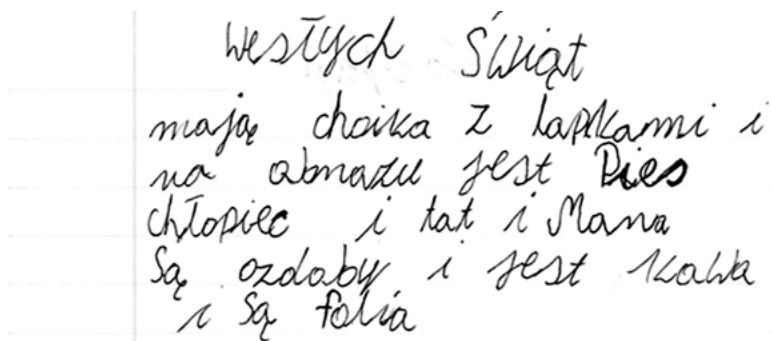 Wesłych Świąt
mają choika z lapkami i
na obmazu jest Pies
chłopiec i tat i Mana
Są ozdaby i jest kawa
i Są folia